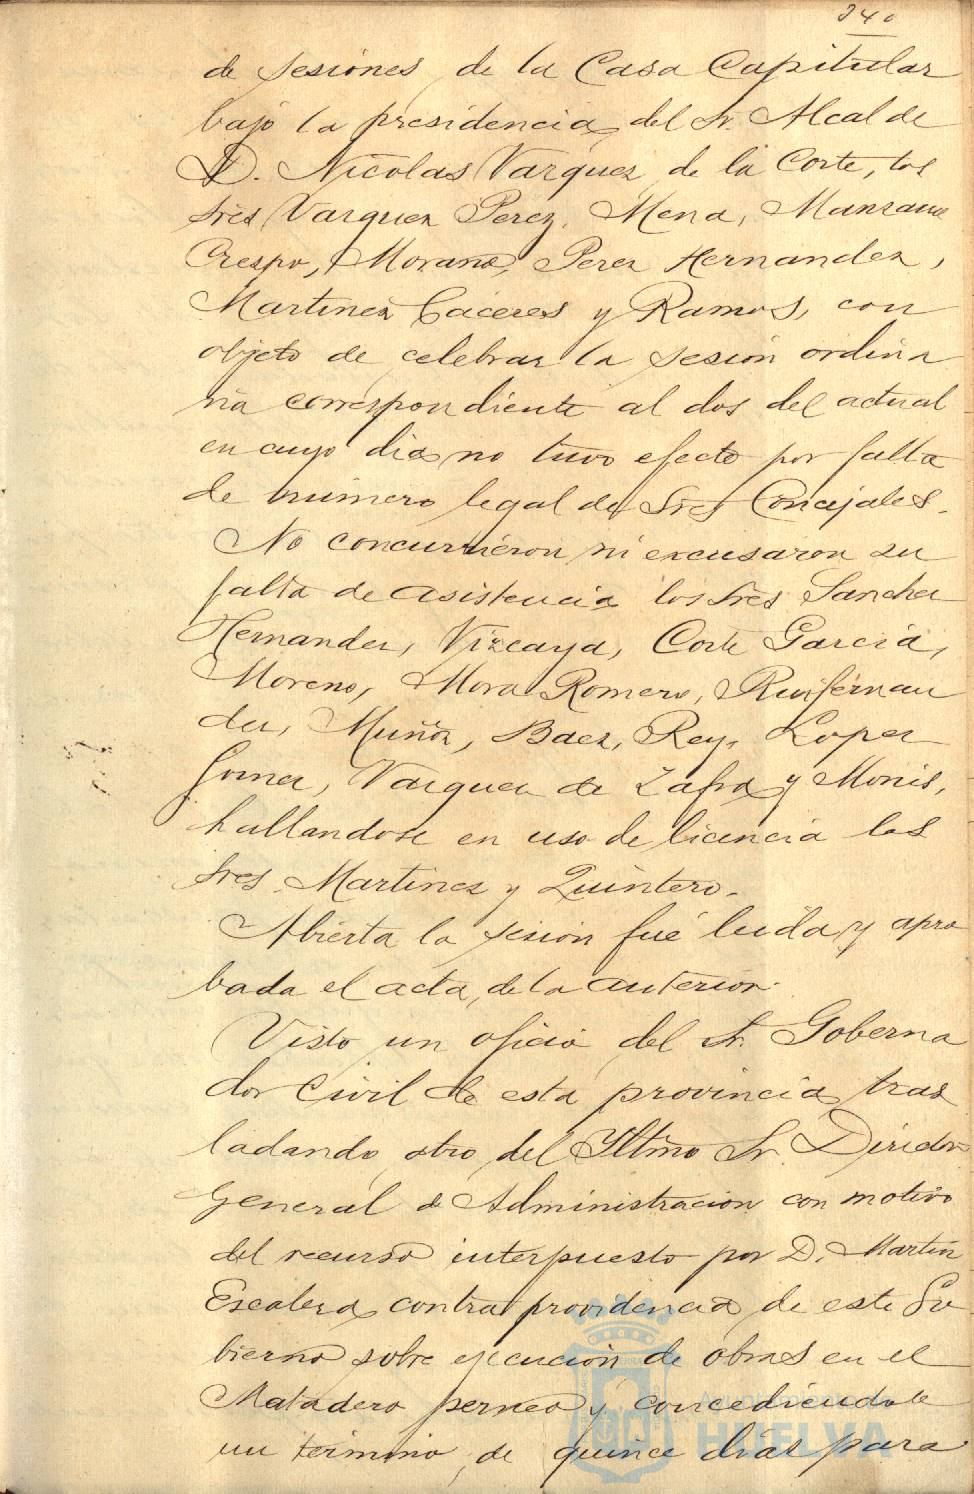 240
de sesiones de la Casa Capitular
bajo la presidencia del Sr. Alcalde
D. Nicolas Vazquez de la Corte, los
Sres Vazquez Perez, Mena, Manzano
Crespo, Morano, Perez Hernandez,
Martinez Cáceres y Ramos, con
objeto de celebrar la sesión ordina
ria correspondiente al dos del actual
en cuyo dia no tuvo efecto por falta
de número legal de Sres Concejales.
No concurrieron ni excusaron su
falta de asistencia los Sres Sanchez
Hernandez, Vizcaya, Corte Garcia,
Moreno, Mora Romero, Ruifernan
dez, Muñoz, Baez, Rey, Lopez
Gomez, Vazquez de Zafra y Monis,
hallandose en uso de licencia los
Sres. Martinez y Quintero.
Abierta la sesion fué leida y apro
bada el acta de la anterior.
Visto un oficio del Sr. Goberna
dor Civil de esta provincia tras
ladando otro del Yltmo Sr. Director
General de Administracion con motivo
del recurso interpuesto por D. Martin
Escalera contra providencia de este Go
bierno sobre ejecución de obras en el
Matadero perneo y concediendole
un termino de quince dias para
Ayuntamiento de
HUELVA